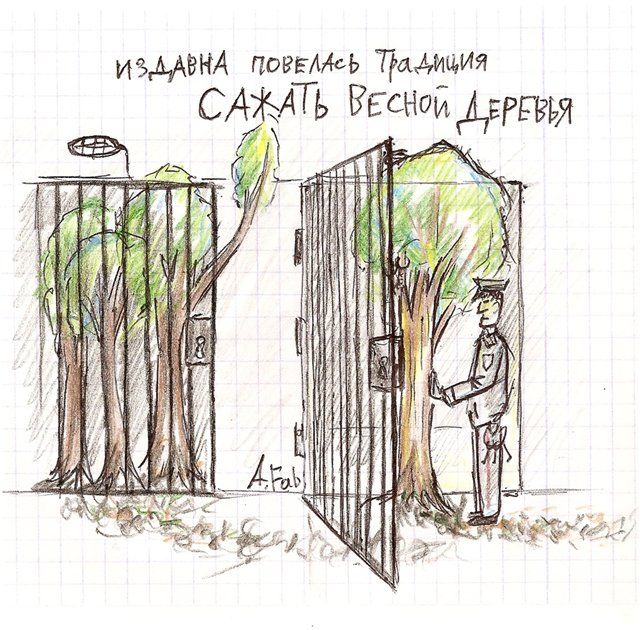 ИЗДАВНА ПОВЕЛАСЬ ТРАДИЦИЯ
САЖАТЬ ВЕСНОЙ ДЕРЕВЬЯ
A.Fab